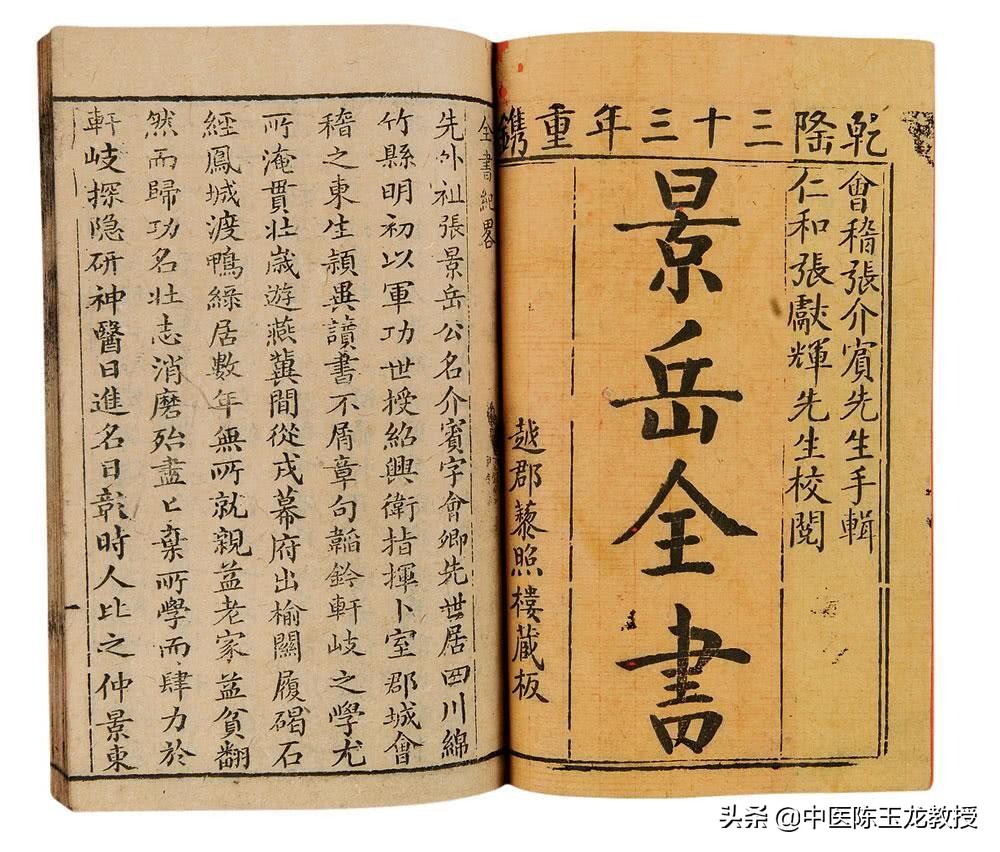 乾隆三十三年重鐫
會稽張介賓先生手輯
仁和張獻輝先生校閱
景岳全書
越郡藜照樓藏板
全書紀畧
先外祖張景岳公名介賓字會卿先世居四川綿
竹縣明初以軍功世授紹興衛指揮卜室郡城會
稽之東生頴異讀書不屑章句韜鈐軒岐之學尤
所淹貫壯歲遊燕冀間從戎幕府出榆關履碣石
經鳳城渡鴨綠居數年無所就親益老家益貧翻
然而歸功名壯志消磨殆盡匕棄所學而肆力於
軒岐探隐研神醫日進名日彰時人比之仲景東
头条 @中医陈玉龙教授